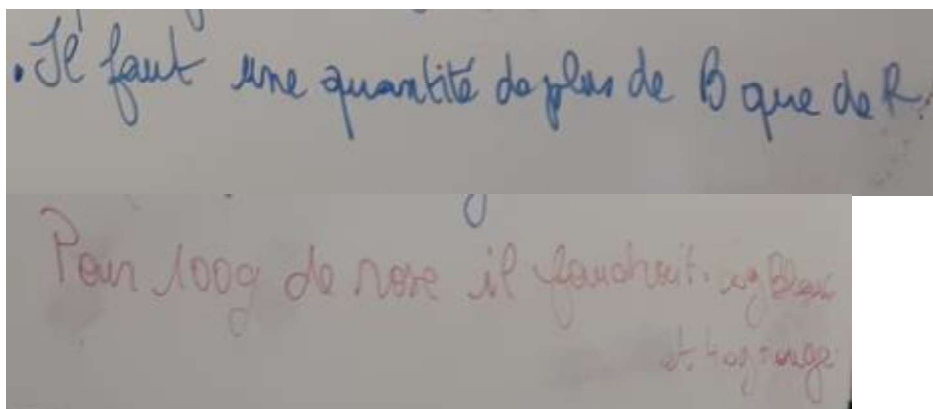 . Il faut une quantité de plus de B que de R.
Pour 100g de rose il faudrait. Blanc
et rouge